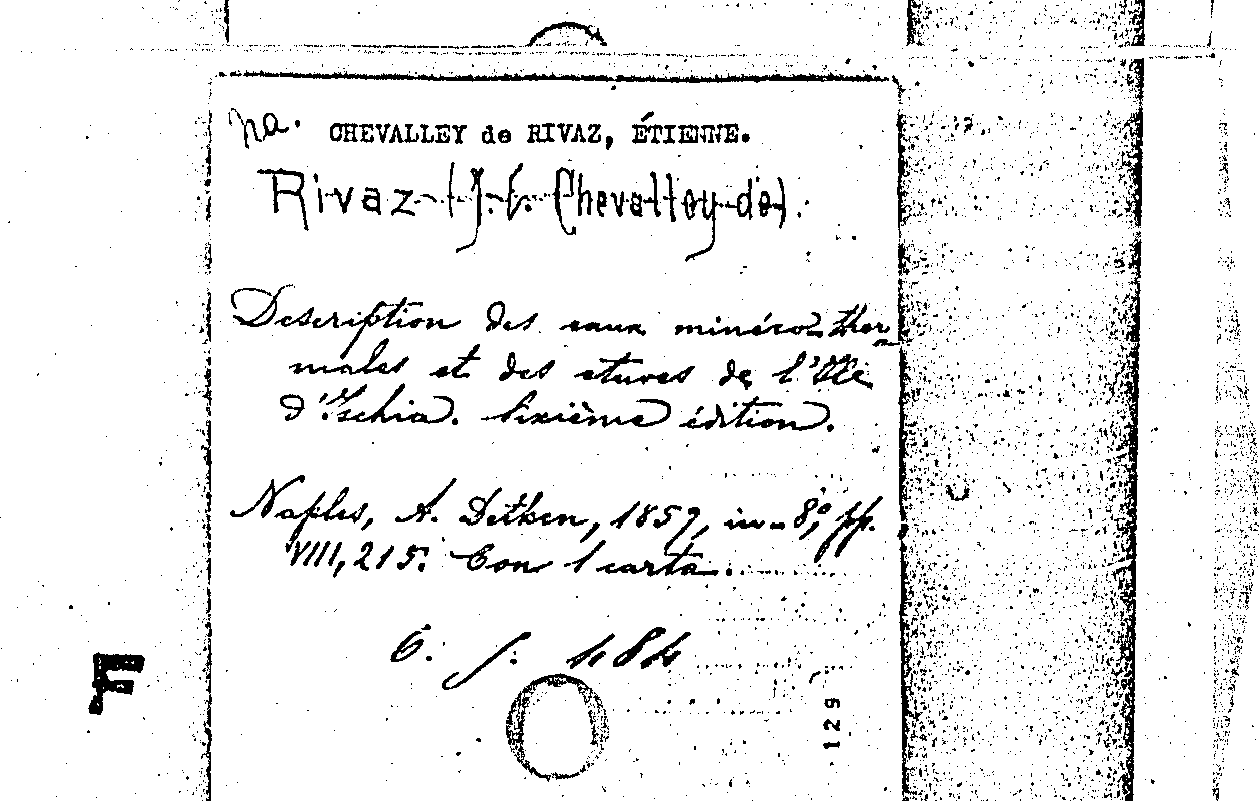 na. CHEVALLEY de RIVAZ, ÉTIENNE.
Rivaz (J. E. Chevalley de).
Description des eaux minéro-ther-
males et des etuves de l'Ile
d'Ischia. Sixième édition.
Naples, A. Detken, 1859, in-8°, pp.
VIII, 215. Con 1 carta.
6. J. 484
F
129